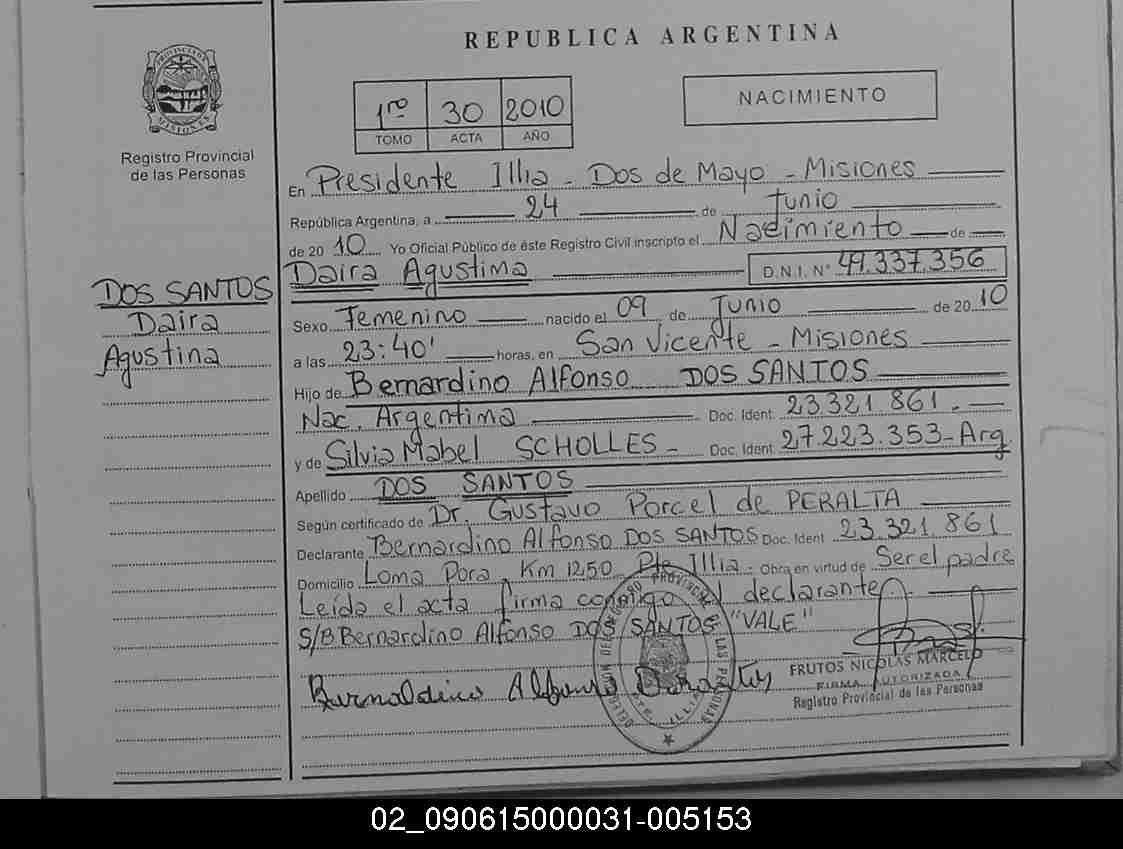 REPUBLICA ARGENTINA
PROVINCIA DE MISIONES
Registro Provincial
de las Personas
1ro 30 2010
TOMO ACTA AÑO
NACIMIENTO
En Presidente Illia - Dos de Mayo - Misiones
República Argentina, a 24 de Junio
de 2010 Yo Oficial Público de éste Registro Civil inscripto el Nacimiento de
Daira Agustina D.N.I. N° 49.337.356
DOS SANTOS
Daira
Agustina
Sexo Femenino nacido el 09 de Junio de 2010
a las 23:40' horas, en San Vicente - Misiones
Hijo de Bernardino Alfonso DOS SANTOS
Nac. Argentina Doc. Ident. 23321.861.-
y de Silvia Mabel SCHOLLES - Doc. Ident. 27.223.353-Arg
Apellido DOS SANTOS
Según certificado de Dr. Gustavo Porcel de PERALTA
Declarante Bernardino Alfonso DOS SANTOS Doc. Ident. 23.321.861
Domicilio Loma Pora, Km 1250 Pte Illia. Obra en virtud de Ser el padre
Leída el acta firma conmigo el declarante.
S/B Bernardino Alfonso DOS SANTOS "VALE"
FRUTOS NICOLAS MARCELO
FIRMA AUTORIZADA
Registro Provincial de las Personas
02_090615000031-005153